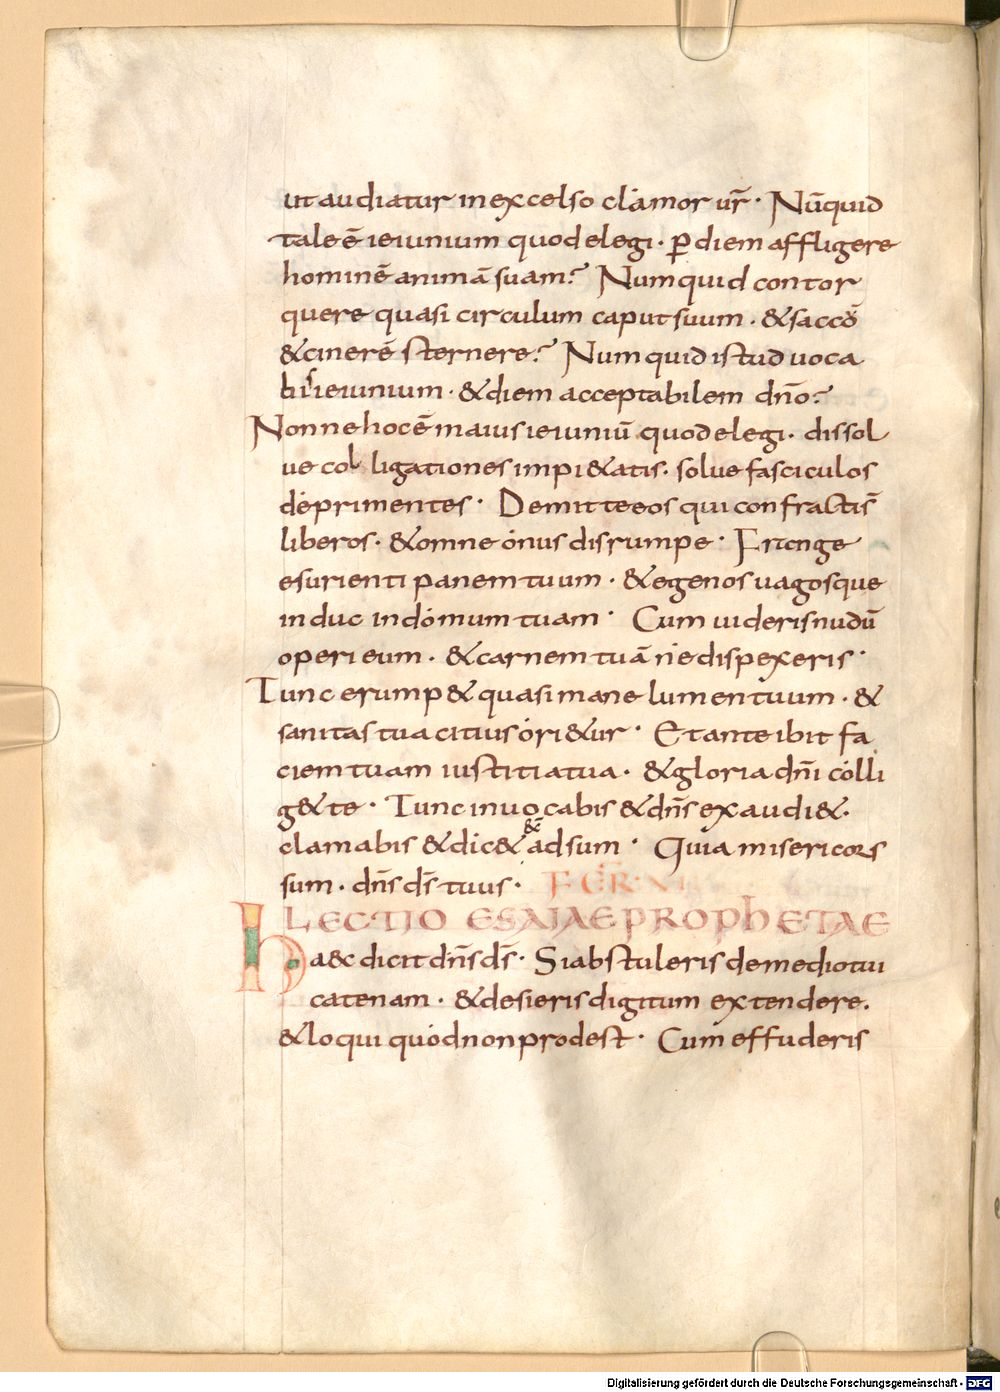 ut audiatur in excelso clamor ur̄· Nūquid
tale ē ieiunium quod elegi· ꝑ diem affligere
hominē animā suam? Numquid contor
quere quasi circulum caput suum· & saccō
& cinerē sternere? Numquid istud uoca
bis ieiunium· & diem acceptabilem dn̄o?
Nonne hoc ē maius ieiuniū quod elegi· dissol
ue colligationes impi&atis· solue fasciculos
deprimentes· Demitte eos qui confracti s̄
liberos· & omne onus disrumpe· Frange
esurienti panem tuum· & egenos uagosque
induc in domum tuam· Cum uideris nudū
operi eum· & carnem tuā ne dispexeris·
Tunc erump& quasi mane lumen tuum· &
sanitas tua citius ori&ur· Et ante ibit fa
ciem tuam iustitia tua· & gloria dn̄i colli
g& te· Tunc inuocabis & dn̄s exaudi&·
clamabis & dic& &c̄ adsum· Quia misericors
sum· dn̄s ds̄ tuus· FER· VI
LECTIO ESAIAE PROPHETAE
ha&c dicit dn̄s ds̄· Si abstuleris de medio tui
catenam· & desieris digitum extendere·
& loqui quod non prodest· Cum effuderis
Digitalisierung gefördert durch die Deutsche Forschungsgemeinschaft - DFG